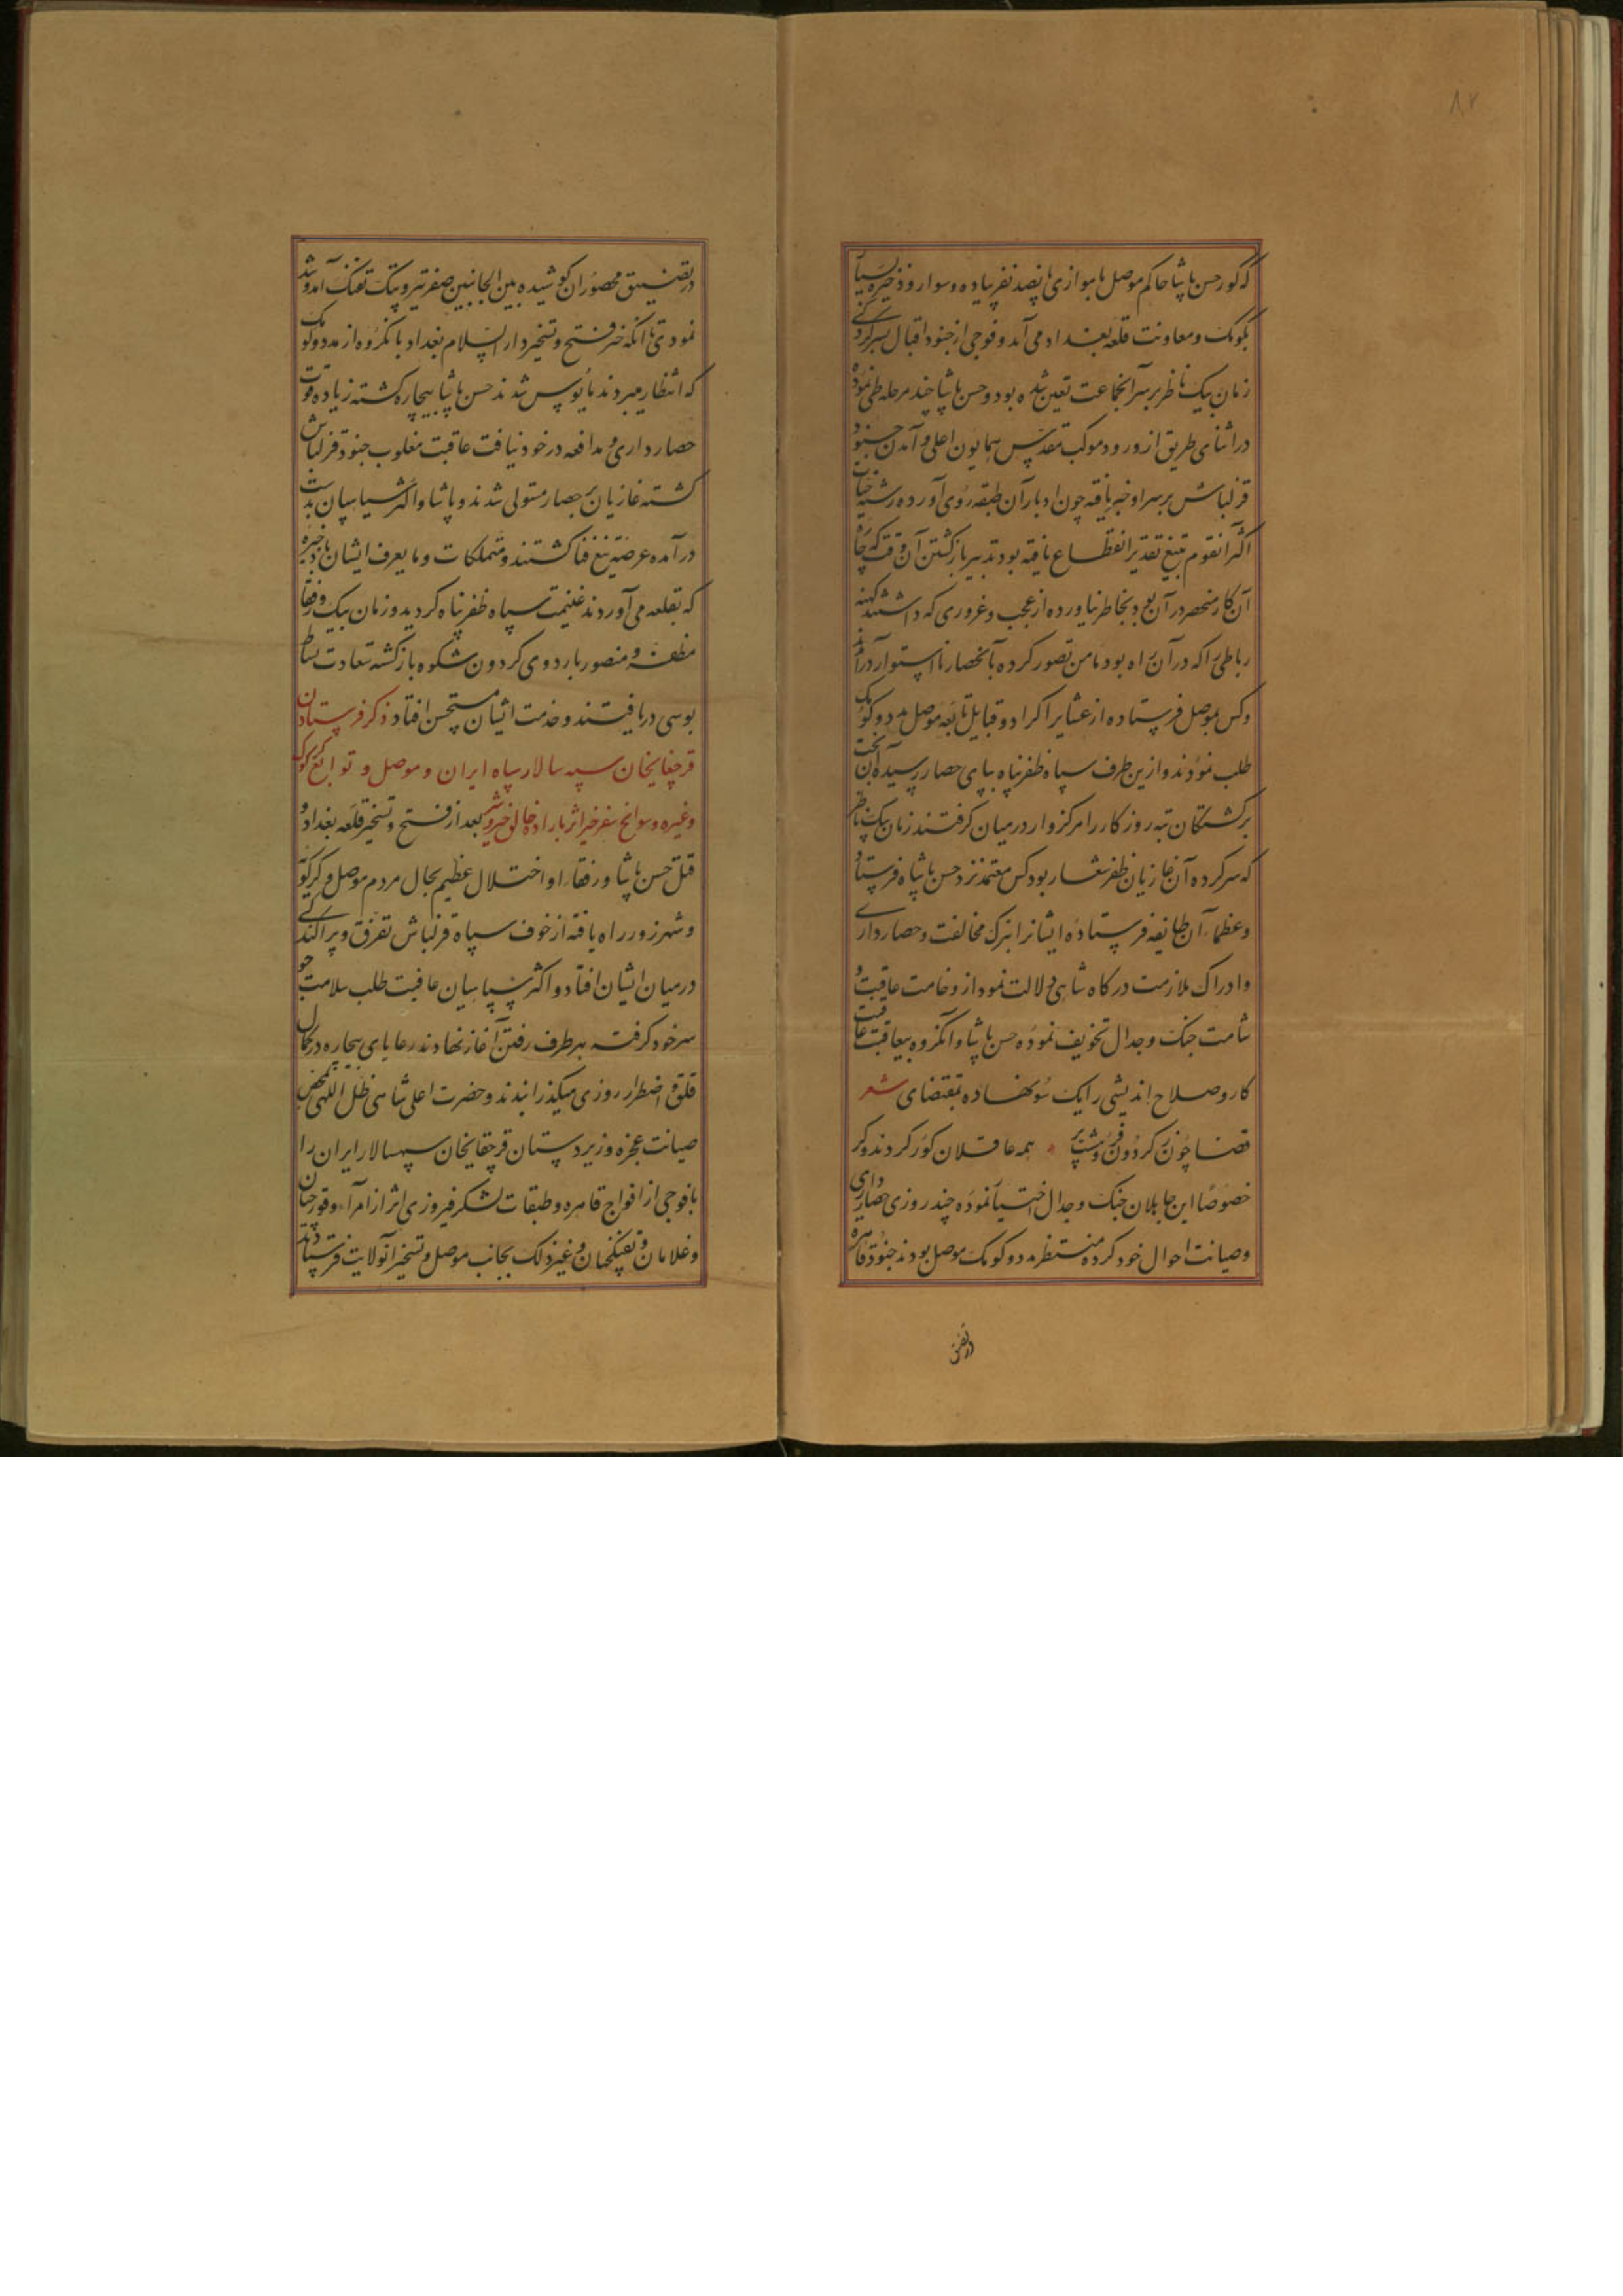 ۸۲
که کور حسن پاشا حاکم موصل با موازی پانصد نفر پیاده و سوار و ذخیره بسیار
بکومک و معاونت قلعه بغداد می آمد و فوجی از جنود اقبال بسرکردگی
زمان بیک ناظر بر سر آنجماعت تعیین شده بود و حسن پاشا چند مرحله طی نموده
در اثنای طریق از ورود موکب مقدس همایون اعلی و آمدن جنود
قزلباش بر سر او خبر یافته چون ادبار آن طبقه روی آورده رشته حیات
اکثر آنقوم بتیغ تقدیر انقطاع یافته بود تدبیر بازگشتن آن وقت که چاره
آن کار منحصر در آن بود بخاطر نیاورده از عجب و غروری که داشتند کهنه
رباطی را که در آن راه بود مامن تصور کرده بآنحصار نا استوار درآمدند
و کس بموصل فرستاده از عشایر اکراد و قبایل تابعه موصل مدد و کومک
طلب نمودند و ازین طرف سپاه ظفر پناه بپای حصار رسیده آن بخت
برگشتگان تیره روزکار را مرکزوار در میان گرفتند زمان بیک ناظر
که سرکرده آن غازیان ظفر شعار بود کس معتمد نزد حسن پاشاه فرستاد
و عظماء آن طایفه فرستاده ایشانرا بترک مخالفت و حصارداری
و ادراک ملازمت درگاه شاهی دلالت نمود از وخامت عاقبت و
شامت جنک و جدال تخویف نموده حسن پاشا و آنگروه بیعاقبت عاقبت
کار و صلاح اندیشی را یک سو نهاده بمقتضای شعر
قضا چون ز کردون فرو هشت پر * همه عاقلان کور کردند و کر
خصوصاً این جاهلان جنک و جدال اختیار نموده چند روزی حصارداری
و صیانت احوال خود کرده منتظر مدد و کومک موصل بودند جنود قاهره
در تضی
در تضییق محصوران کوشیده بین الجانبین صفیر تیر و پیک تفنک آمد و شد
نمودی تا آنکه خبر فتح و تسخیر دار السلام بغداد بانگروه از مدد و کومک
که انتظار میبردند مایوس شدند حسن پاشا بیچاره کشته زیاده قوت
حصارداری و مدافعه در خود نیافت عاقبت مغلوب جنود قزلباش
کشته غازیان بر حصار مستولی شدند و پاشا و اکثر سپاهیان بدست
درآمده عرضه تیغ فنا کشتند و متملکات و ما یعرف ایشان با ذخیره
که بقلعه می آوردند غنیمت سپاه ظفر پناه کردید و زمان بیک و رفقا
مظفر و منصور باردوی کردون شکوه بازکشته سعادت بساط
بوسی دریافتند و خدمت ایشان مستحسن افتاد ذکر فرستادن
قرچقایخان سپه سالار سپاه ایران و موصل و توابع کرکوک
و غیره و سوانح سفر خیر اثر باراده خالق خیر و شر بعد از فتح و تسخیر قلعه بغداد و
قتل حسن پاشا و رفقاء او اختلال عظیم بحال مردم موصل و کرکوک
و شهرزور راه یافته از خوف سپاه قزلباش تفرق و پراکندگی
در میان ایشان افتاد و اکثر سپاهیان عافیت طلب سلامت جو
سر خود کرفته بهر طرف رفتن آغاز نهادند رعایای بیچاره در کمال
قلق و اضطرار روزی میگذرانیدند و حضرت اعلی شاهی ظل اللهی بمحض
صیانت عجزه و زیردستان قرچقایخان سپهسالار ایران را
با فوجی از افواج قاهره و طبقات لشکر فیروزی اثر از امراء و قورچیان
و غلامان و تفنکچیان و غیر ذلک بجانب موصل و تسخیر آنولایت فرستادند